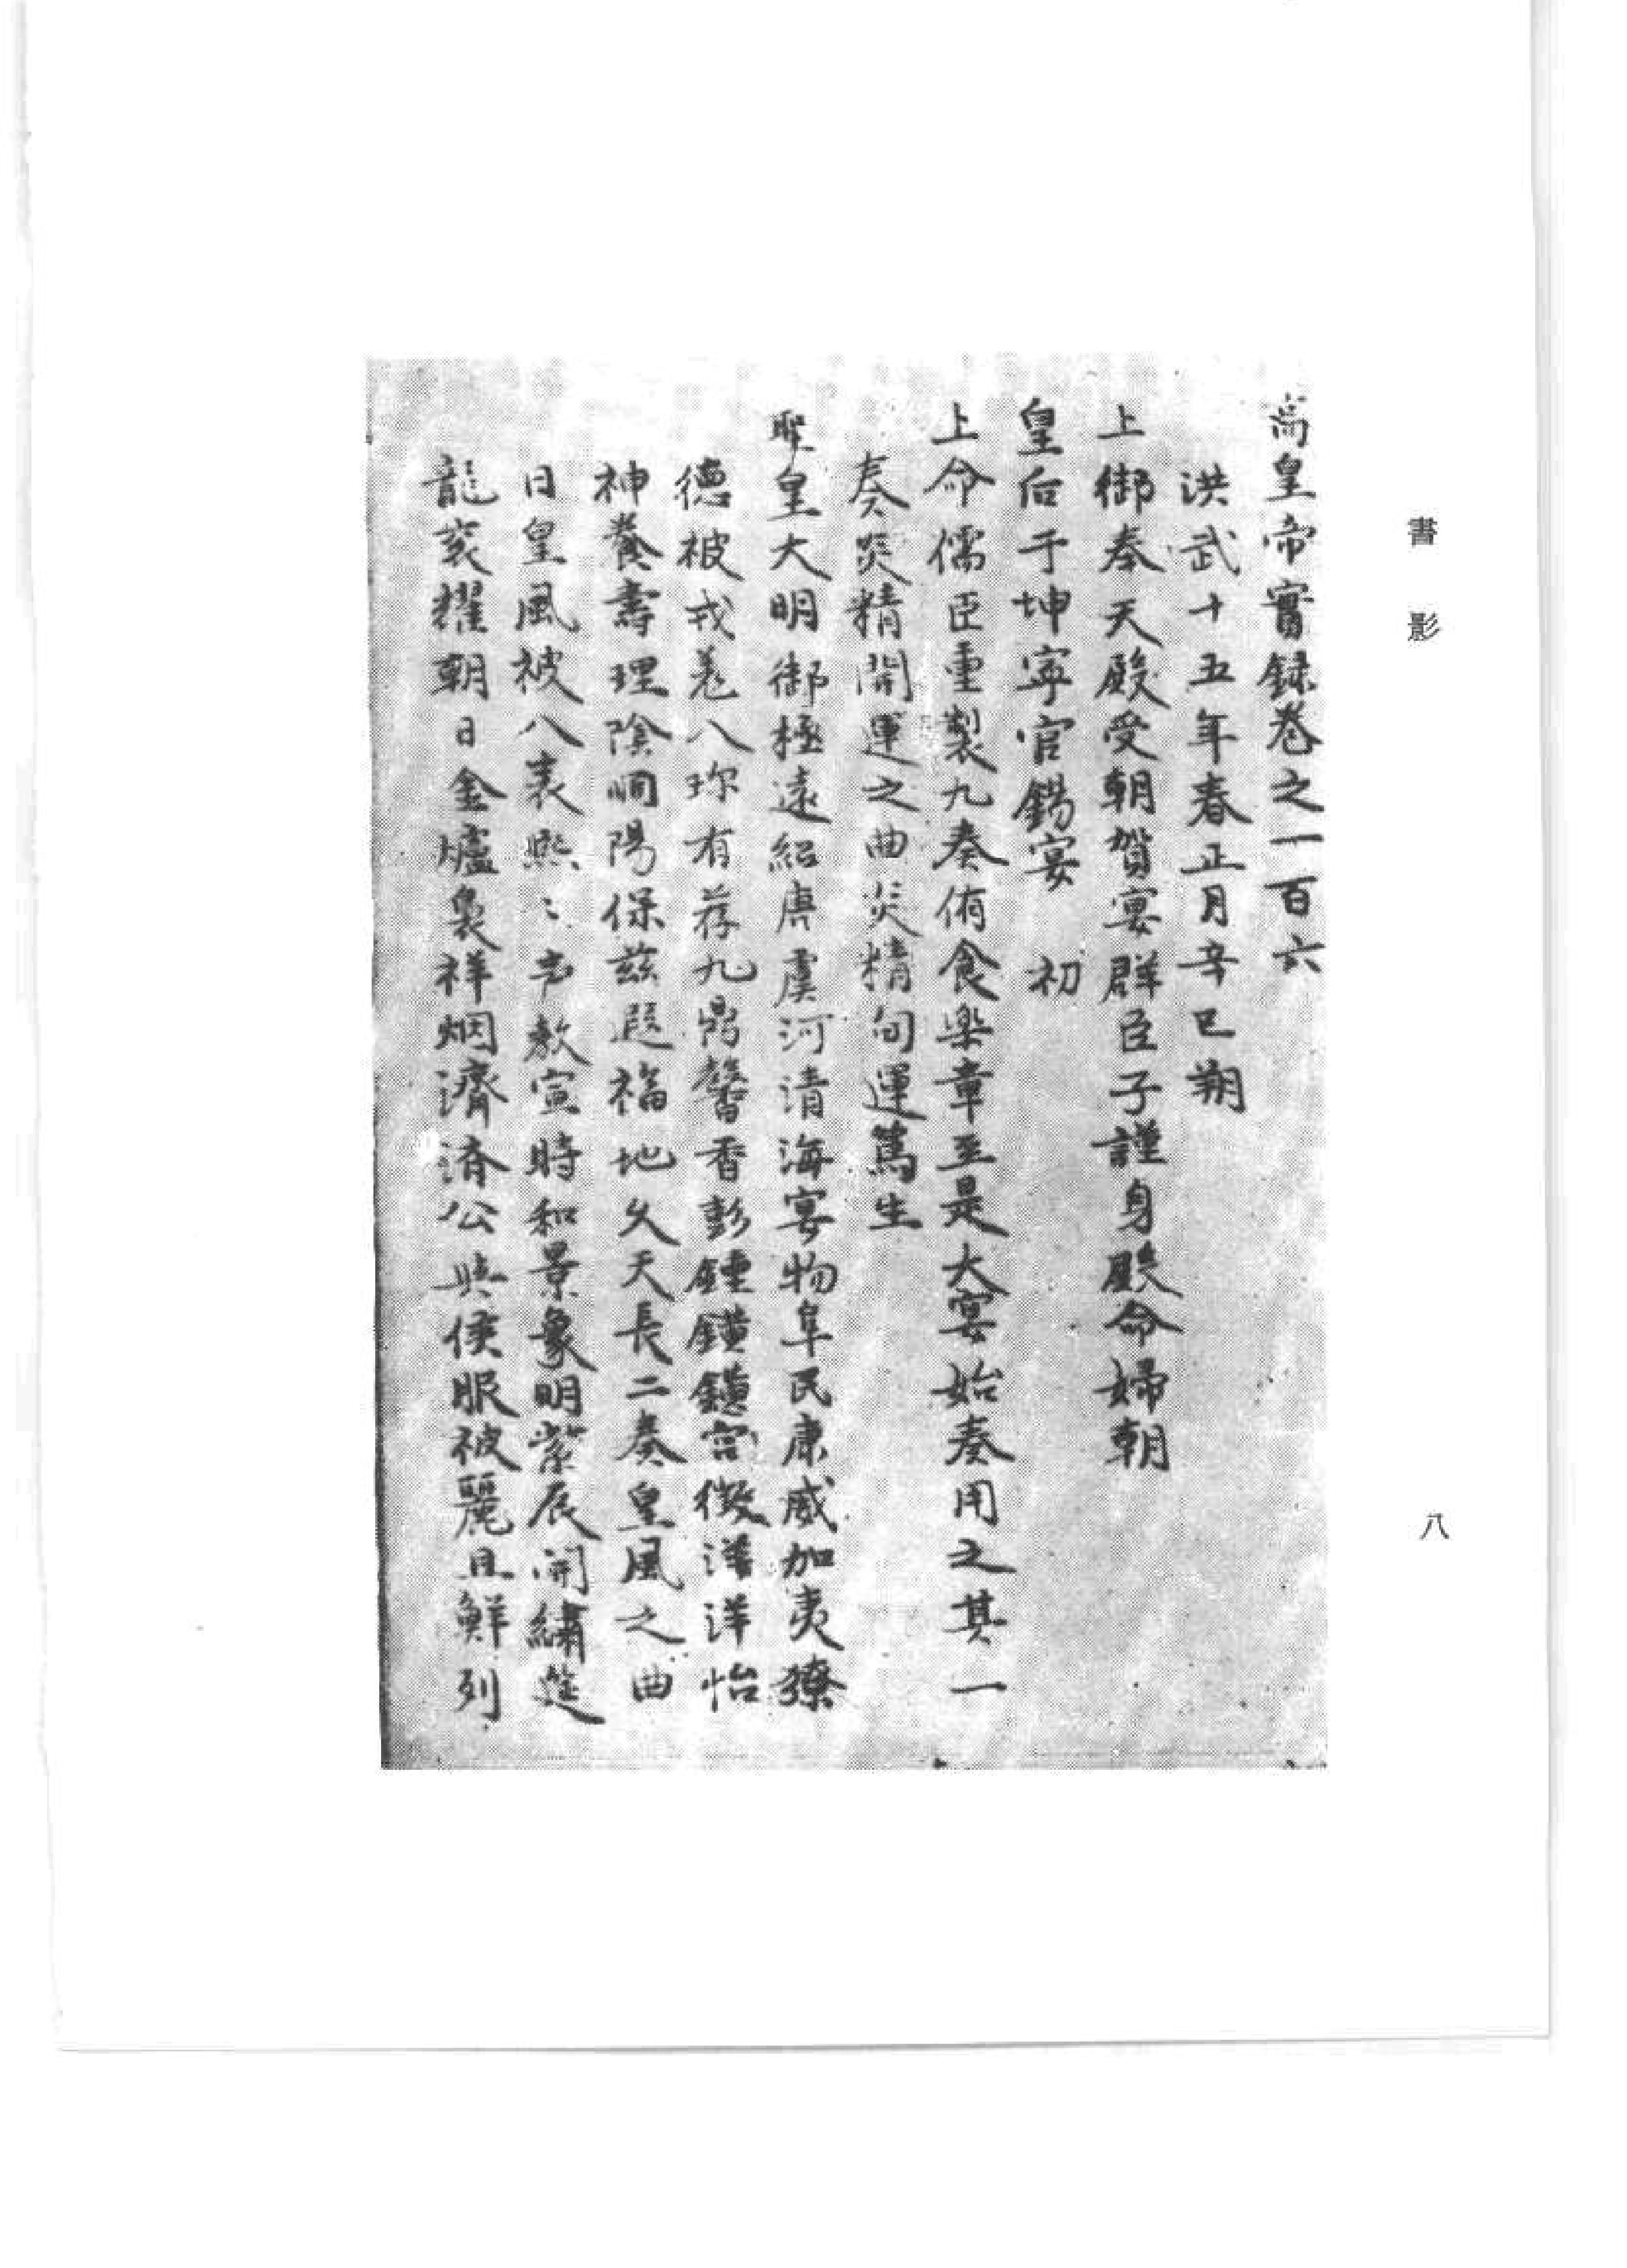 書影
八
高皇帝實録卷之一百六
洪武十五年春正月辛巳朔
上御奉天殿受朝賀宴群臣子謹身殿命婦朝
皇后于坤寧宮錫宴　初
上命儒臣重製九奏侑食樂章至是大宴始奏用之其一
奏炎精開運之曲炎精句運篤生
聖皇大明御極遠紹唐虞河清海宴物阜民康威加夷獠
德被戎羌八珎有荐九鼎馨香彭鍾鐄鐄宮徵洋洋怡
神養壽理陰調陽保茲遐福地久天長二奏皇風之曲
日皇風被八表熙〻声教宣時和景象明紫宸開繡筵
龍衮耀朝日金爐裊祥烟濟済公與侯服被麗且鮮列